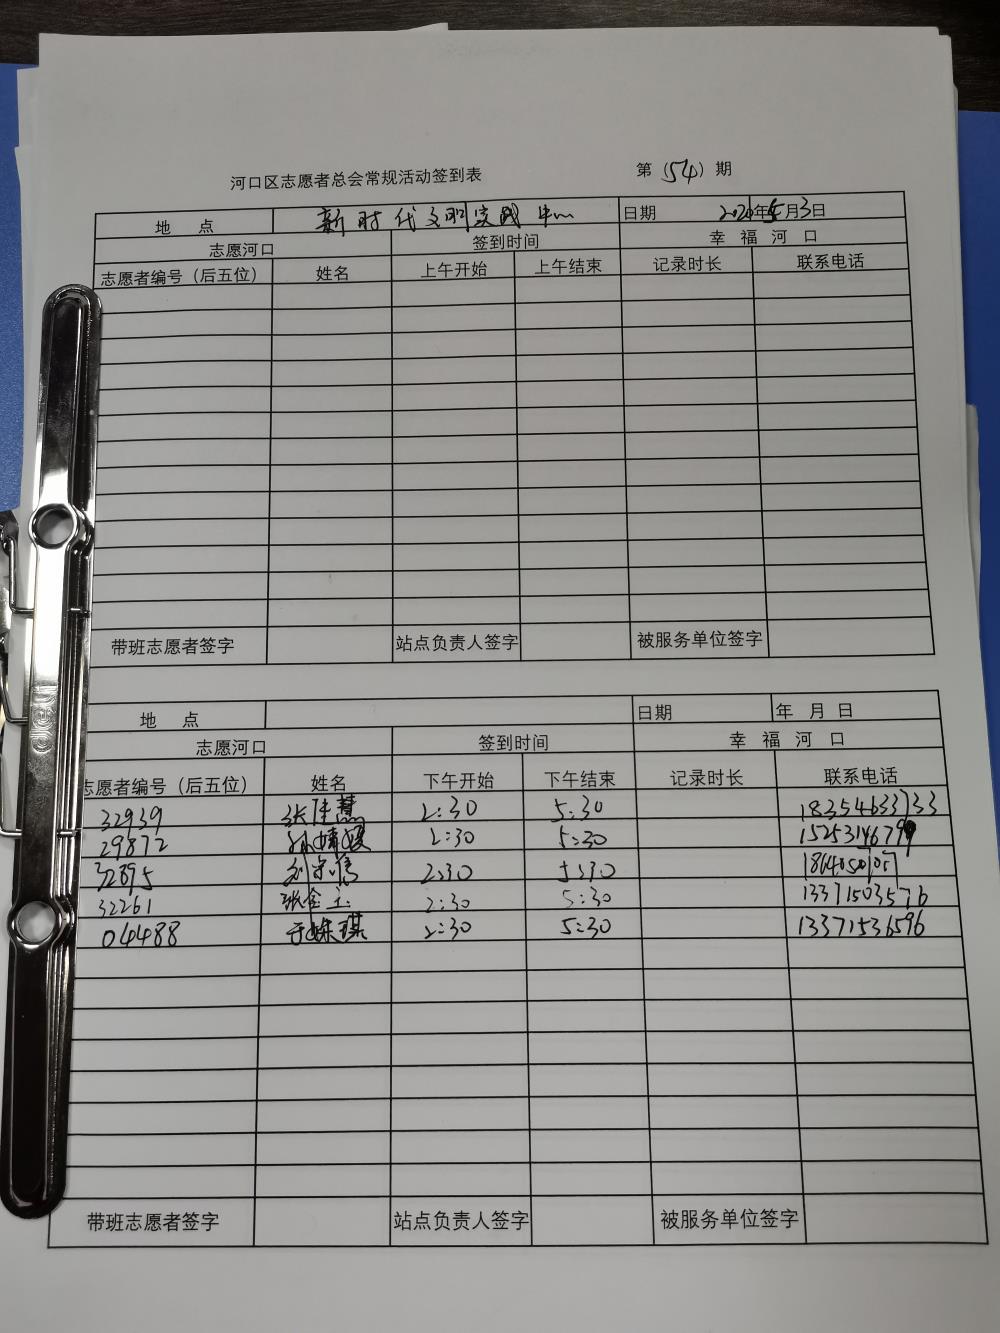 河口区志愿者总会常规活动签到表 第（54）期
地 点 新时代文明实践中心 日期 2020年5月3日
志愿河口 签到时间 幸 福 河 口
志愿者编号（后五位） 姓名 上午开始 上午结束 记录时长 联系电话
带班志愿者签字 站点负责人签字 被服务单位签字
地 点 日期 年 月 日
志愿河口 签到时间 幸 福 河 口
志愿者编号（后五位） 姓名 下午开始 下午结束 记录时长 联系电话
32939 张佳慧 2:30 5:30 18354633733
29872 2:30 5:30
32895 2:30 5:30
32261 2:30 5:30 13371503576
04488 于姝琪 2:30 5:30 13371536596
带班志愿者签字 站点负责人签字 被服务单位签字
deli